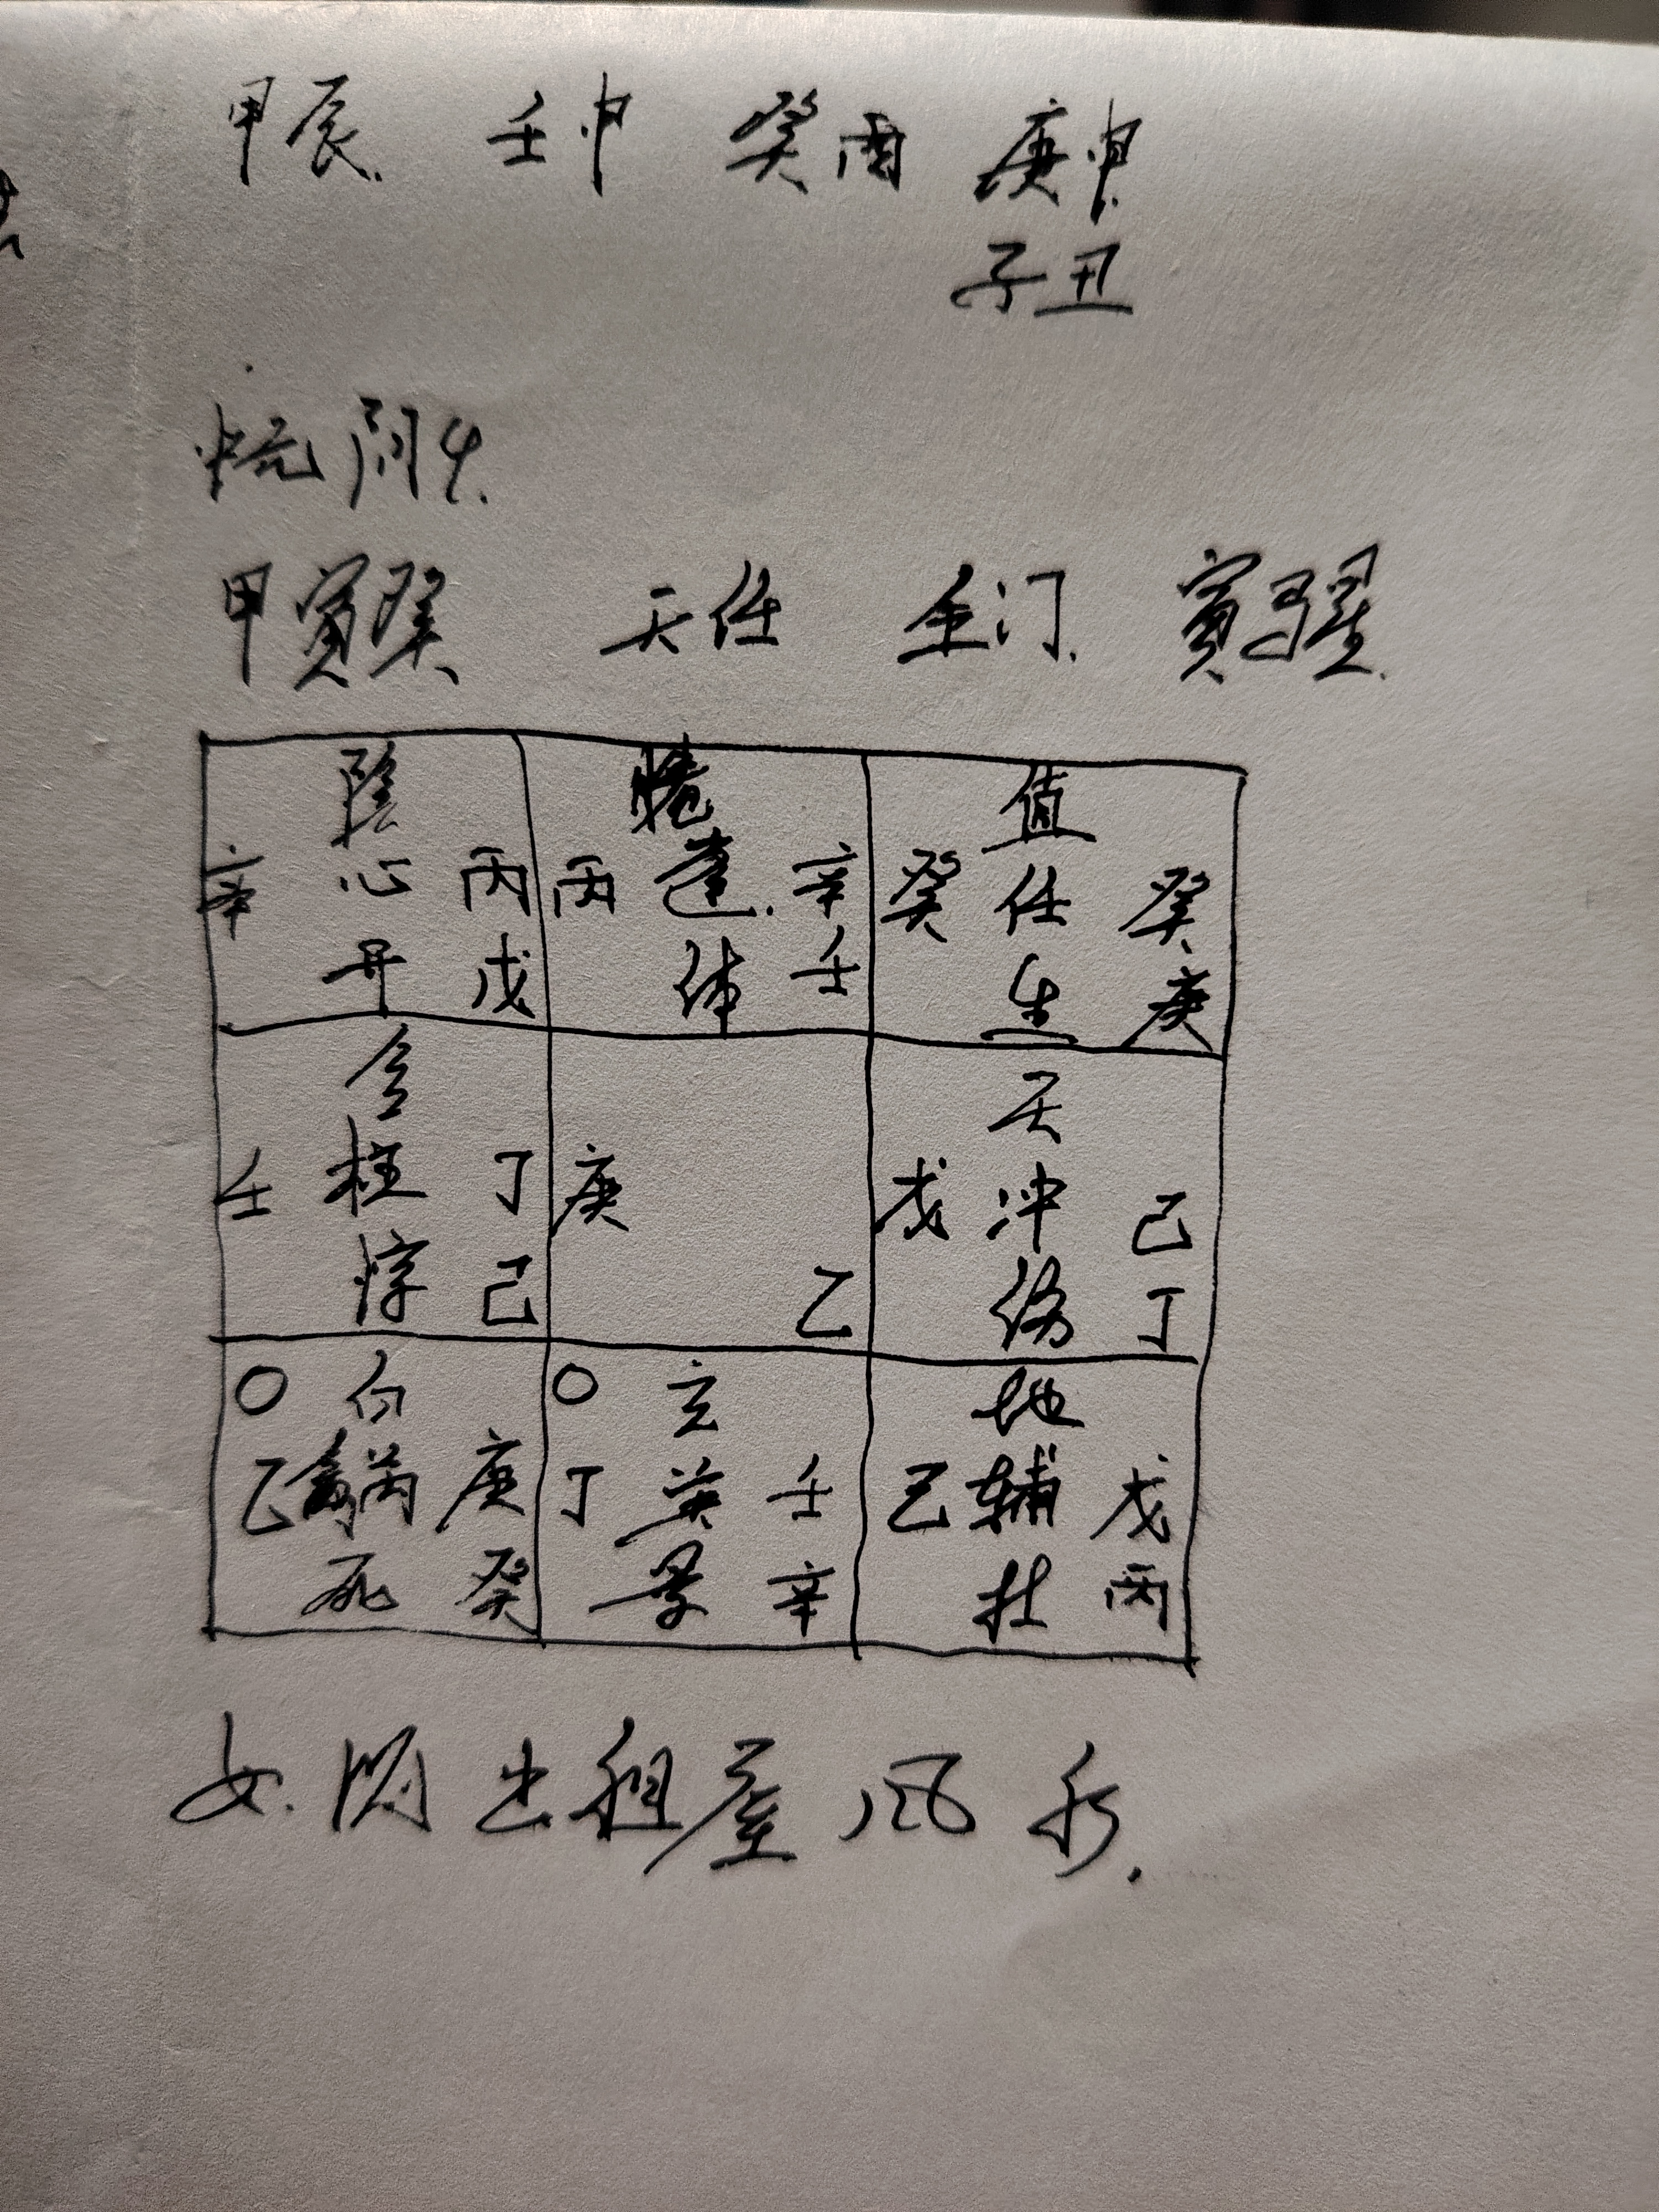 甲辰 壬申 癸酉 庚申
子丑
中元 阴4
甲寅癸 天任 生门 寅马星
阴 心 开 辛 丙 戊
蓬 休 丙 辛 壬
值 任 生 癸 癸 庚
合 柱 惊 壬 丁 己
庚 乙
天 冲 伤 戊 己 丁
○ 白 乙 禽芮 庚 死 癸
○ 玄 丁 英 壬 景 辛
地 己 辅 戊 杜 丙
女 问 出租屋 风水